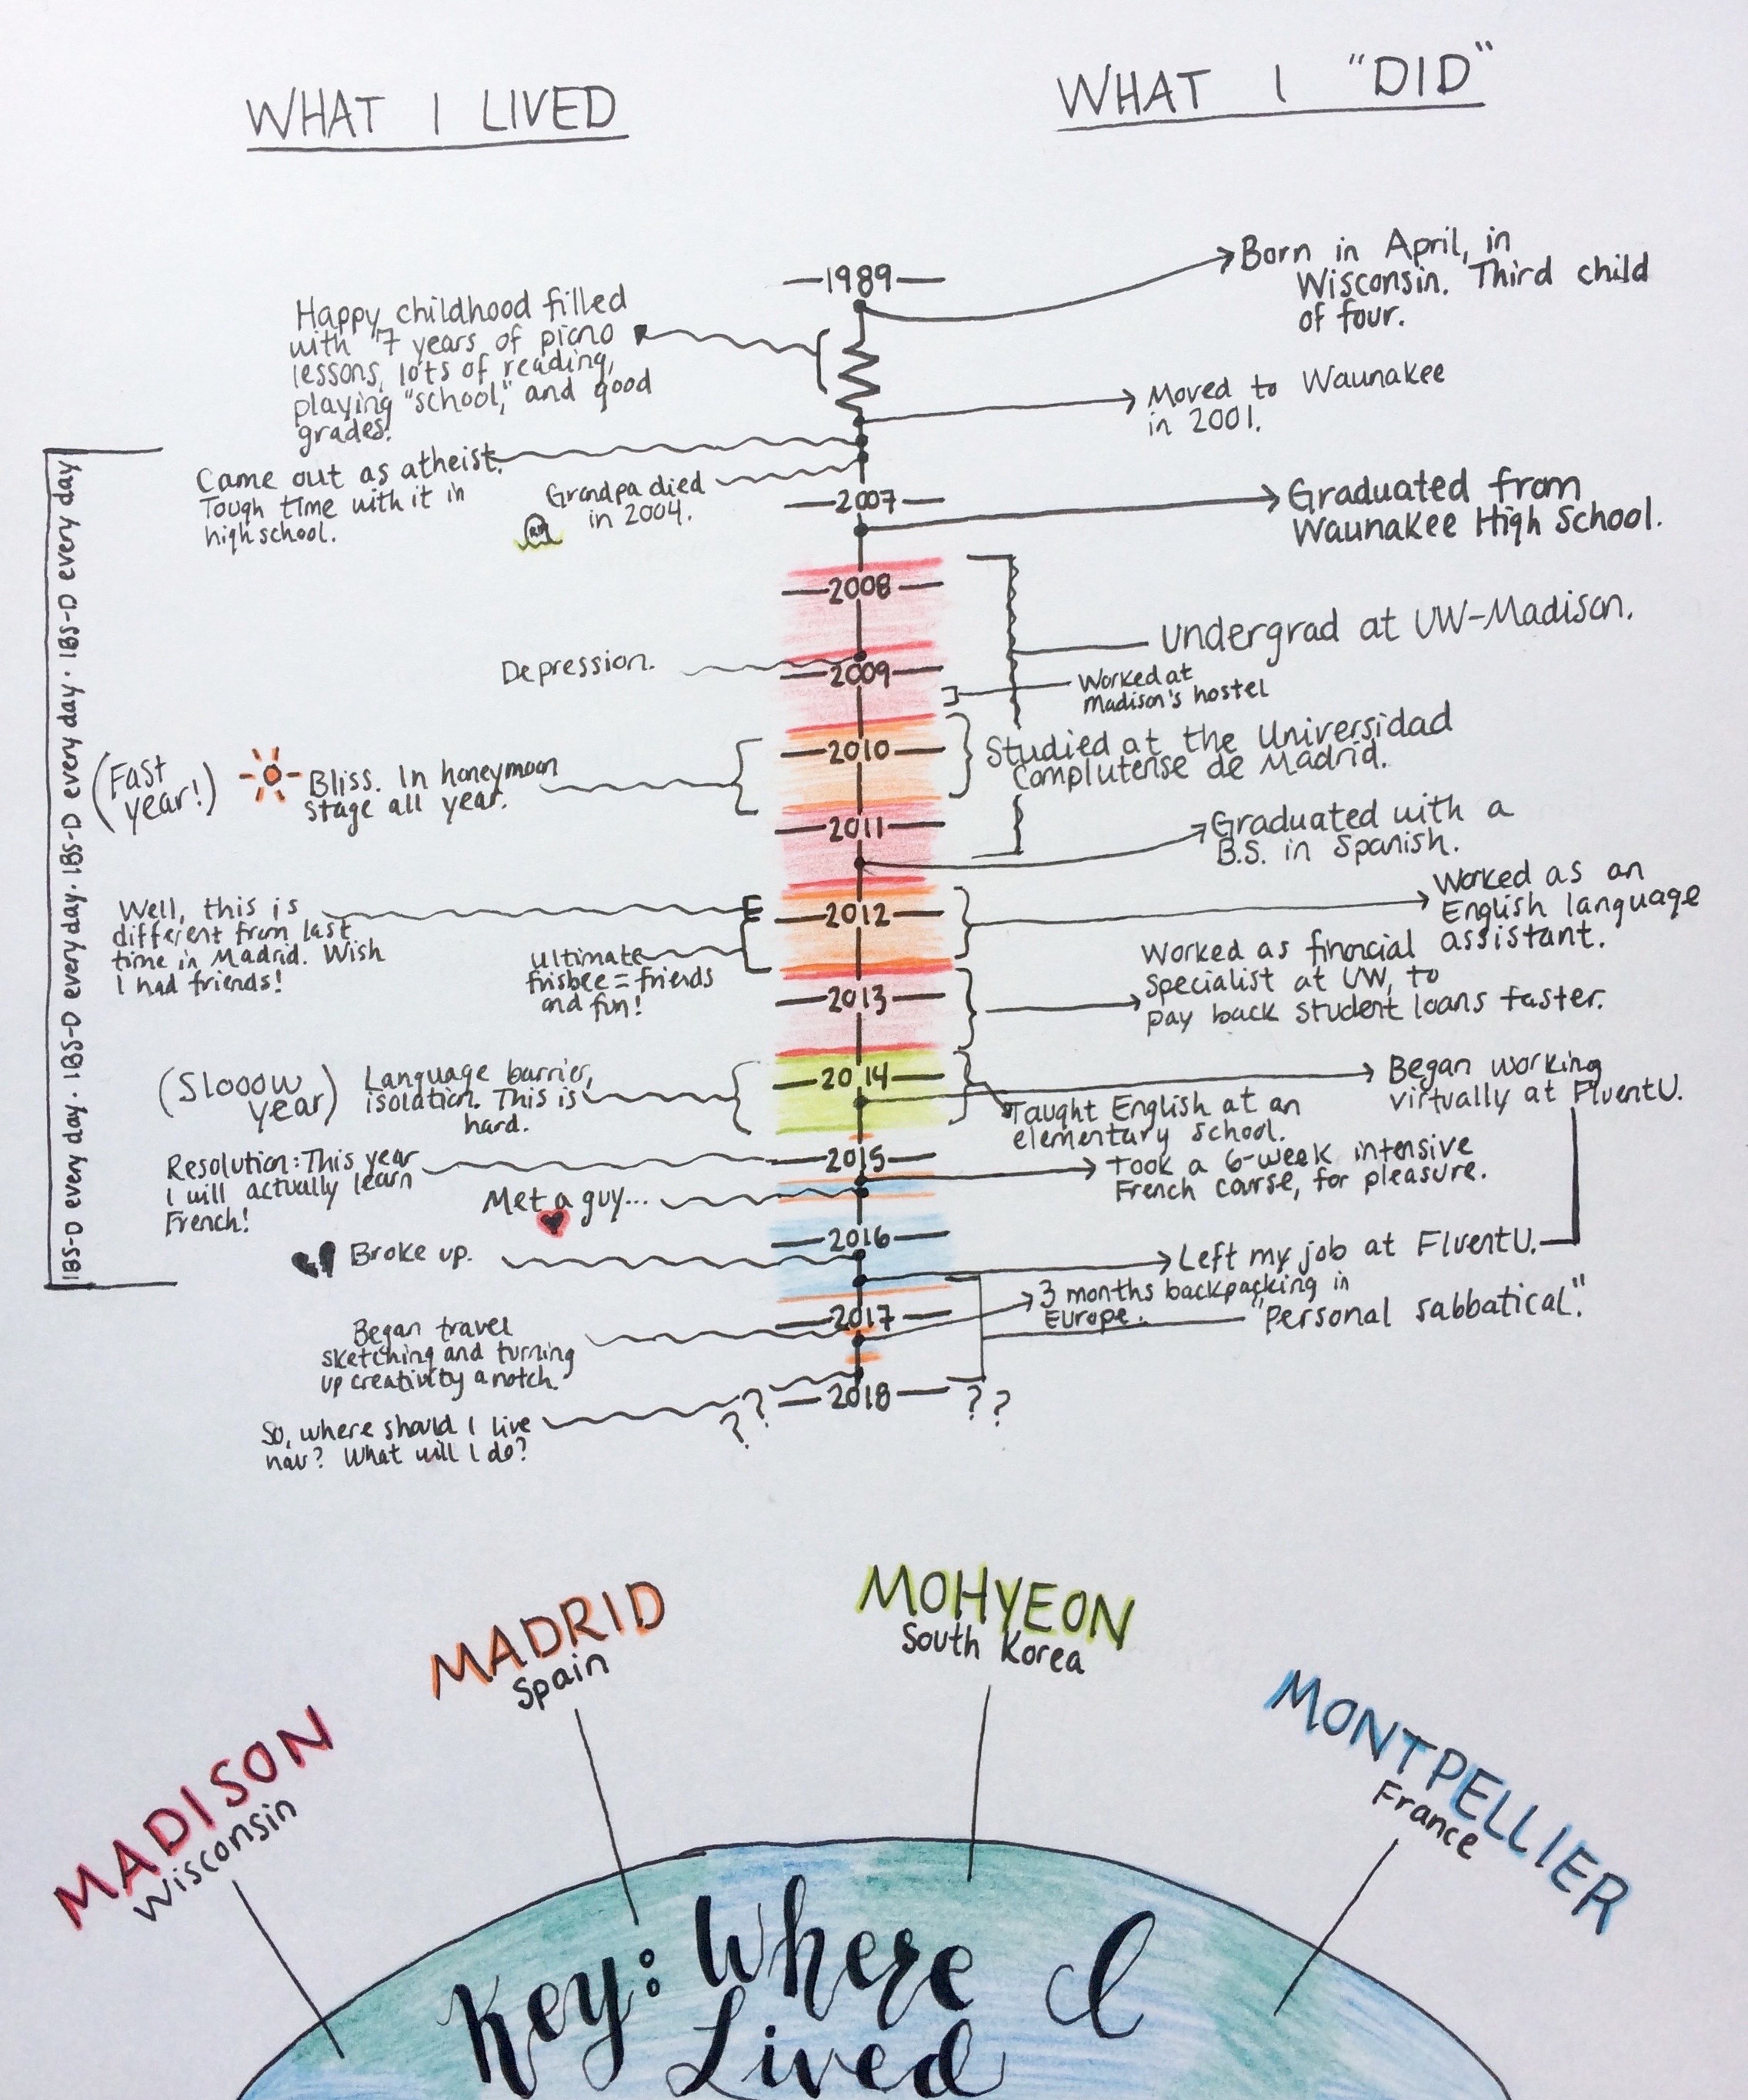 WHAT I LIVED
WHAT I "DID"
1989
Born in April, in
Wisconsin. Third child
of four.
Happy childhood filled
with 7 years of piano
lessons, lots of reading,
playing "school," and good
grades!
Moved to Waunakee
in 2001.
Came out as atheist.
Tough time with it in
high school.
Grandpa died
in 2004.
2007
Graduated from
Waunakee High School.
2008
Undergrad at UW-Madison.
Depression.
2009
Worked at
Madison's hostel
2010
Studied at the Universidad
Complutense de Madrid.
(Fast
year!)
Bliss. In honeymoon
stage all year.
2011
Graduated with a
B.S. in Spanish.
Worked as an
English language
assistant.
2012
Well, this is
different from last
time in Madrid. Wish
I had friends!
Ultimate
frisbee = friends
and fun!
Worked as financial
specialist at UW, to
pay back student loans faster.
2013
2014
Began working
virtually at FluentU.
(Slooow
year)
Language barrier,
isolation. This is
hard.
Taught English at an
elementary school.
2015
Resolution: This year
I will actually learn
French!
Took a 6-week intensive
French course, for pleasure.
Met a guy...
2016
Broke up.
Left my job at FluentU.
3 months backpacking in
Europe.
"Personal sabbatical."
2017
Began travel
sketching and turning
up creativity a notch.
2018
? ?
? ?
So, where should I live
now? What will I do?
IBS-D every day. IBS-D every day. IBS-D every day. IBS-D every day. IBS-D every day
MADISON
Wisconsin
MADRID
Spain
MOHYEON
South Korea
MONTPELLIER
France
Key: Where I
Lived